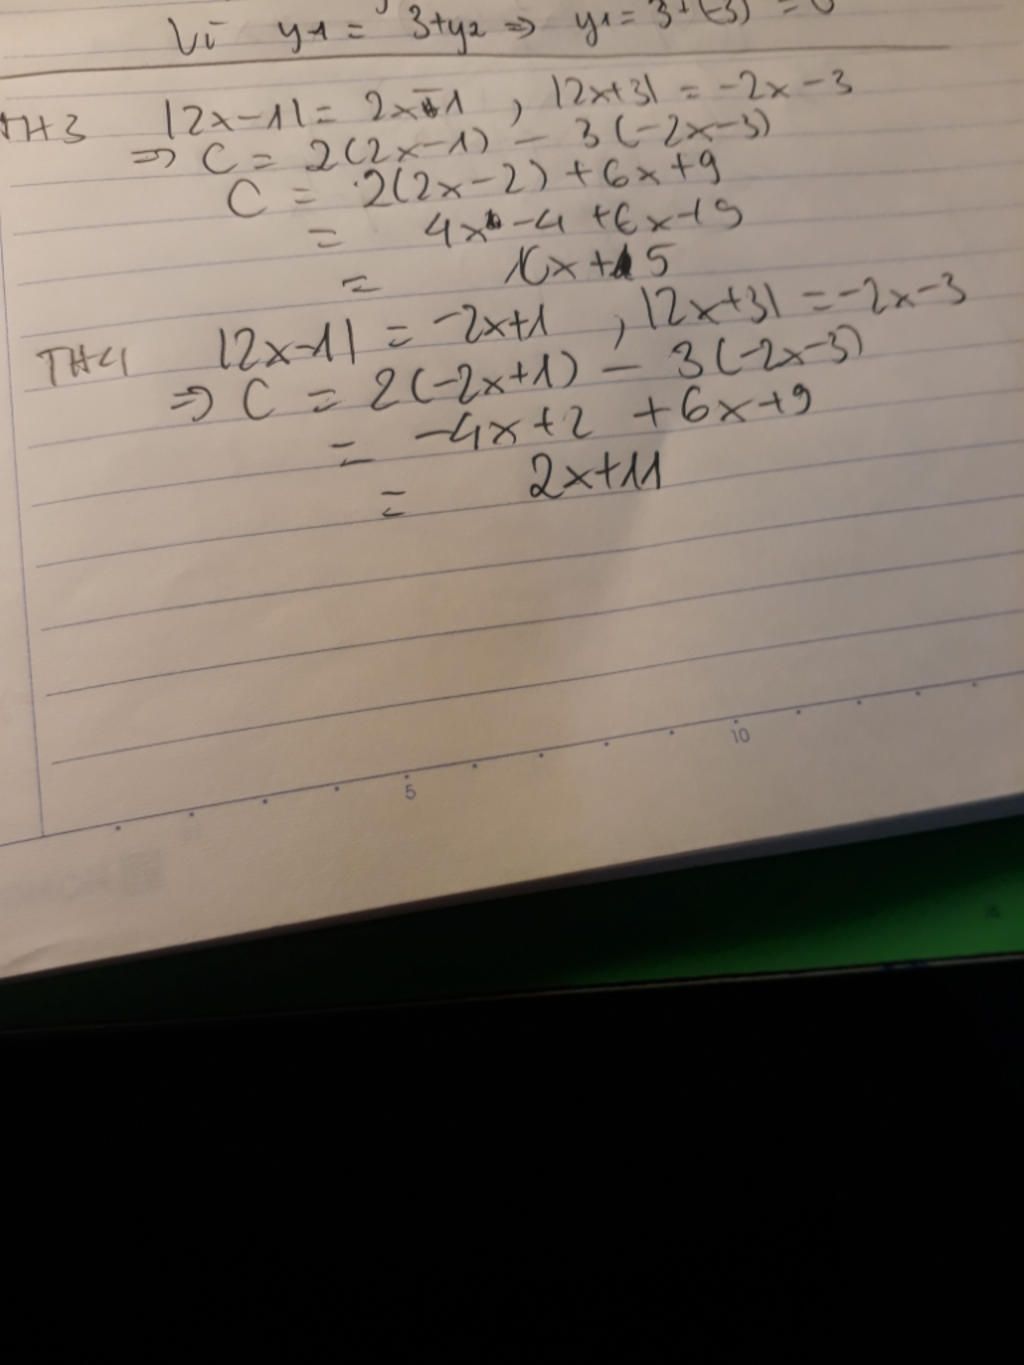 Vì y1 = 3+y2 => y1 = 3+(-3) = 0
TH3 |2x-1| = 2x-1 , |2x+3| = -2x-3
=> C = 2(2x-1) - 3(-2x-3)
C = 2(2x-2) + 6x+9
= 4x -4 +6x+9
= 10x + 5
TH4 |2x-1| = -2x+1 , |2x+3| = -2x-3
=> C = 2(-2x+1) - 3(-2x-3)
= -4x+2 +6x+9
= 2x+11
5 10